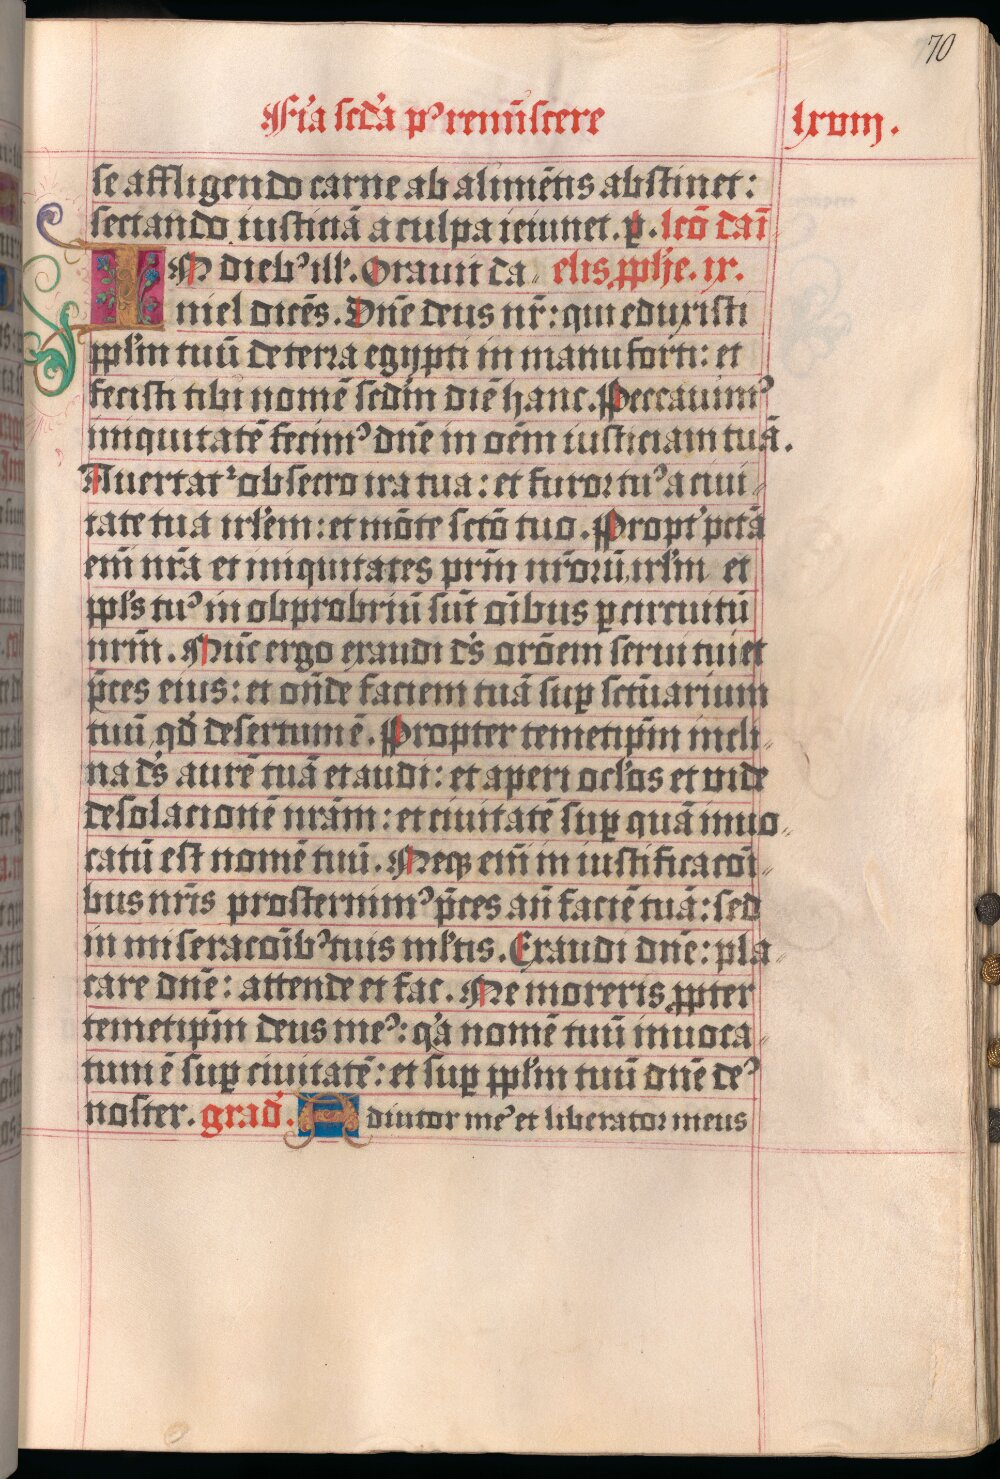 70
Fr̃a scd̃a pꝰ remĩscere lxviij.
se affligendo carne ab alimẽtis abstinet:
sectando iusticiã a culpa ieiunet. ꝑ. lcõ daĩ
In diebꝰ ill'. Orauit da⸗ elis ꝓph̃e. ix.
niel dicẽs. Dñe deus nr̃: qui eduxisti
ppl'm tuũ de terra egypti in manu forti: et
fecisti tibi nomẽ scd̃m diẽ hanc. Peccauimꝰ
iniquitatẽ fecimꝰ dñe in oẽm iusticiam tuã.
Auertat᷑ obsecro ira tua: et furor tuꝰ a ciui⸗
tate tua irl'em: et mõte scõ tuo. Propt' pctã
em̃ nr̃a et iniquitates pr̃m nr̃orũ irl'm et
ppl's tuꝰ in obprobriũ sũt oĩbus ꝑ circuitũ
nrm̃. Nũc ergo exaudi d's orõem serui tui et
p̃ces eius: et oñde faciem tuã suꝑ sctũarium
tuũ qd' desertum ẽ. Propter temetip̃m incli⸗
na d's aurẽ tuã et audi: et aperi ocl'os et vide
desolacionẽ nrãm: et ciuitatẽ suꝑ quã inuo⸗
catũ est nomẽ tuũ. Neqꝫ em̃ in iustificacõi⸗
bus nr̃is prosternimꝰ p̃ces añ faciẽ tuã: sed
in miseracõibꝰ tuis ml'tis. Exaudi dñe: pla⸗
care dñe: attende et fac. Ne moreris ꝓpter
temetip̃m deus meꝰ: q'a nomẽ tuũ inuoca⸗
tum ẽ suꝑ ciuitatẽ: et suꝑ ppl'm tuũ dñe deꝰ
noster. grad'. Adiutor meꝰ et liberator meus